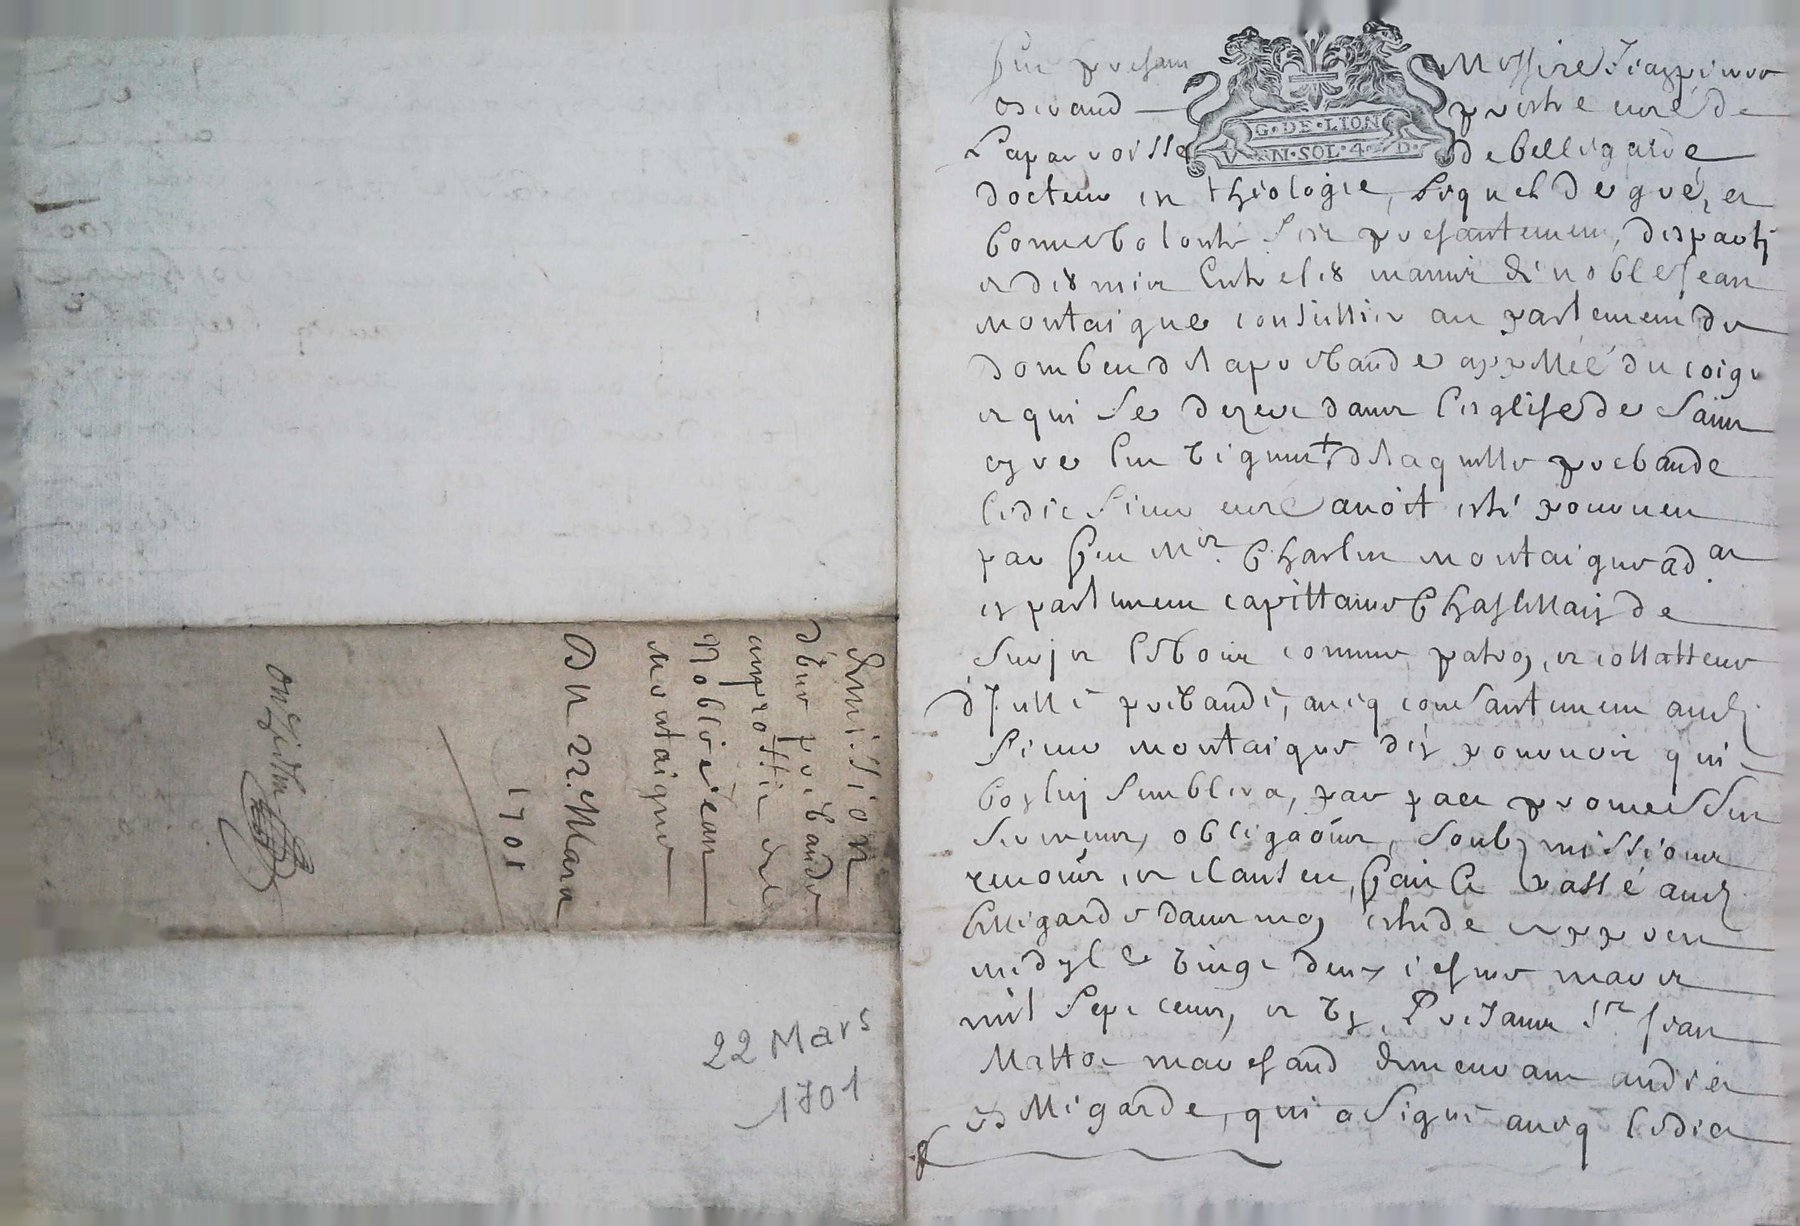 Fut present Messire
Giraud prestre curé de
La parroisse de Bellegarde
docteur en theologie, lequel de gré, et
bonne volonté s'est presantement, desparti
et desmis entre les mains de noble Jean
Montaigne conseillier au parlement de
Dombes de la prebande appellée du coigne
et qui se dezert dans l'esglise de Saint
Cyre les Vignes de laquelle prebande
ledit sieur curé avoit esté pourveu
par feu Mre Charles Montaigne ad. at
en parlement cappittaine Chastellain de
Surjet Lebouc comme patron, et collatteur
d'jcelle prebande, avecq consantement audit
sieur Montaigne d'en pourvoir qui
bon luy semblera, par pace promesses
sermens, obligaõns, soubzmissions
renõns, et clauses, fait et passé audit
Bellegarde dans mon estude appres
midy le vingt deuxiesme mars
mil sept cents, et un, Presans Sr Jean
Mattoe marchand demeurant audit
Bellegarde, qui a signé avecq ledit
Demission
d'une prebande
au proffit de
Noble Jean
Montaigne
Du 22. Mars
1701
22 Mars
1701
G·DE·LION
VN·SOL·4·D·